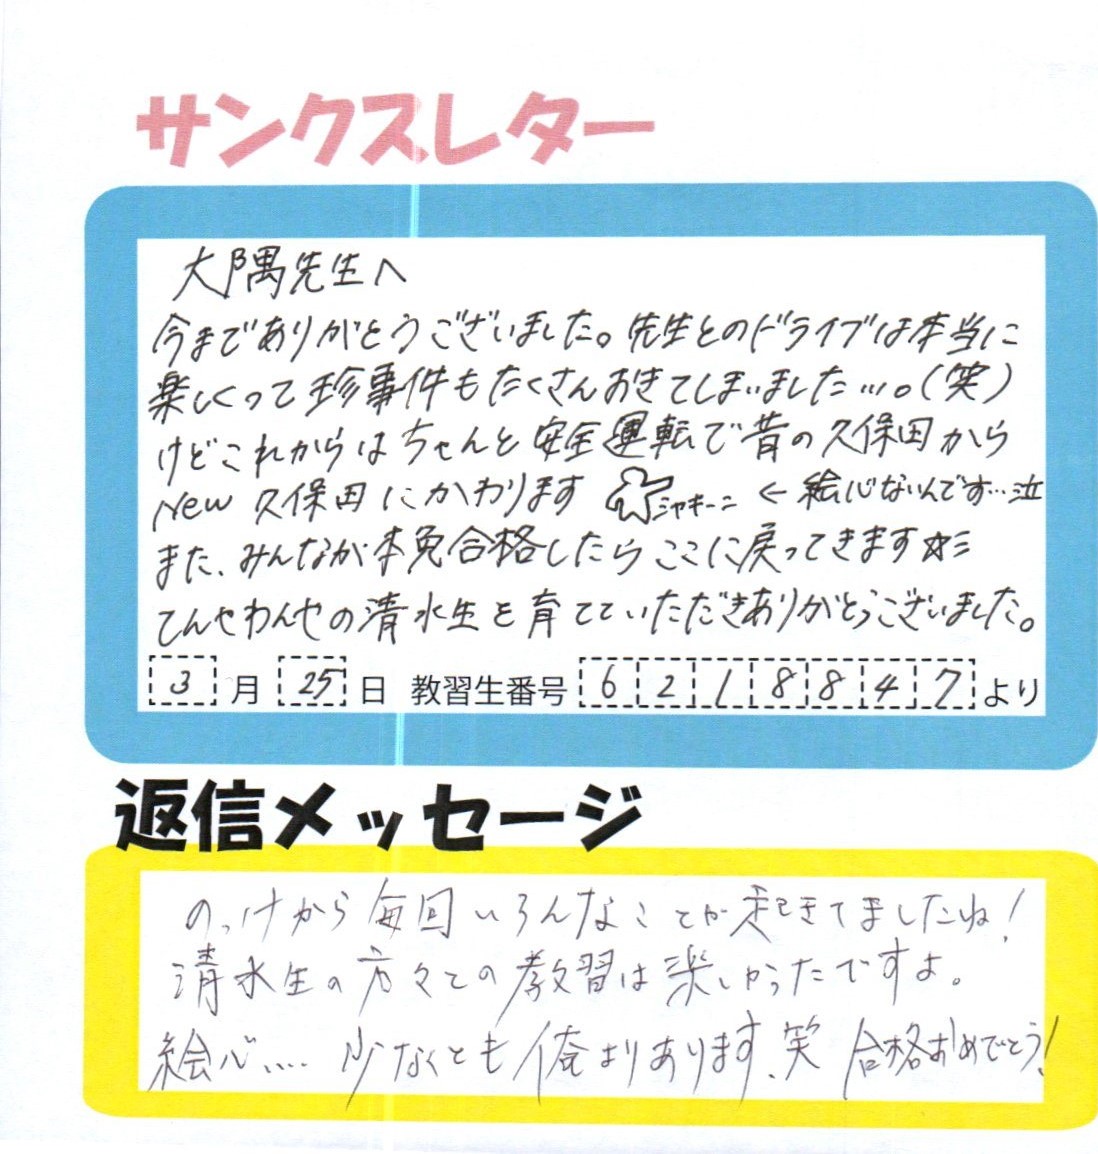 サンクスレター
大隅先生へ
今までありがとうございました。先生とのドライブは本当に
楽しくって珍事件もたくさんおきてしまいました…。(笑)
けどこれからはちゃんと安全運転で昔の久保田から
New 久保田にかわります シャキーン ← 絵心ないんです…泣
また、みんなが本免合格したらここに戻ってきます☆彡
てんやわんやの清水生を育てていただきありがとうございました。
3月25日 教習生番号6218847より
返信メッセージ
のっけから毎回いろんなことが起きてましたね!
清水生の方々との教習は楽しかったですよ。
絵心…. 少なくとも俺よりあります、笑 合格おめでとう!